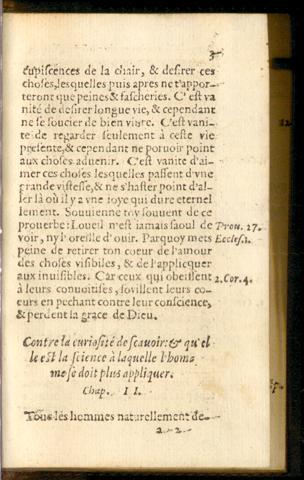 3
cupiscences de la chair, & desirer ces
choses, lesquelles puis apres ne t'appor-
teront que peines & fascheries. C'est va
nité de desirer longue vie, & cependant
ne se soucier de bien vivre. C'est vani-
te de regarder seulement à ceste vie
presente, & cependant ne porvoir point
aux choses advenir. C'est vanite d'ai-
mer ces choses lesquelles passent d'vne
grande vistesse, & ne s'haster point d'al-
ler là où il y a vne ioye qui dure eternel
lement. Souuienne toy souuent de ce
prouerbe: L'oueil n'est iamais saoul de Prou. 17.
voir, ny l'oreille d'ouir. Parquoy mets Eccles. 1.
peine de retirer ton coeur de l'amour
des choses visibiles, & de l'applicquer
aux inuisibles. Car ceux qui obeissent 2. Cor. 4.
à leurs conuoitises, sovillent leurs co-
eurs en pechant contre leur conscience,
& perdent la grace de Dieu.
Contre la curiosité de scavoir: & qu'el
le est la science à laquelle l'homo
me se doit plus appliquer.
Chap. II.
Tous les hommes naturellement de-
a-2-